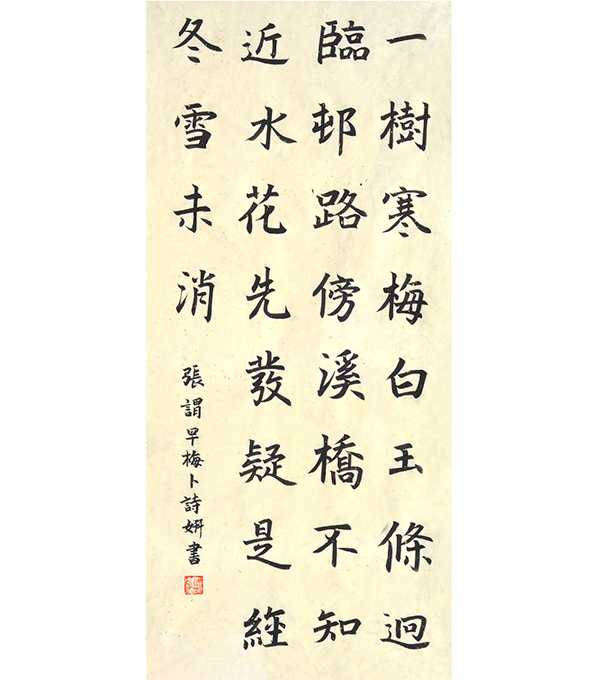 一樹寒梅白玉條迥
臨邨路傍溪橋不知
近水花先發疑是經
冬雪未消
張謂早梅卜詩妍書